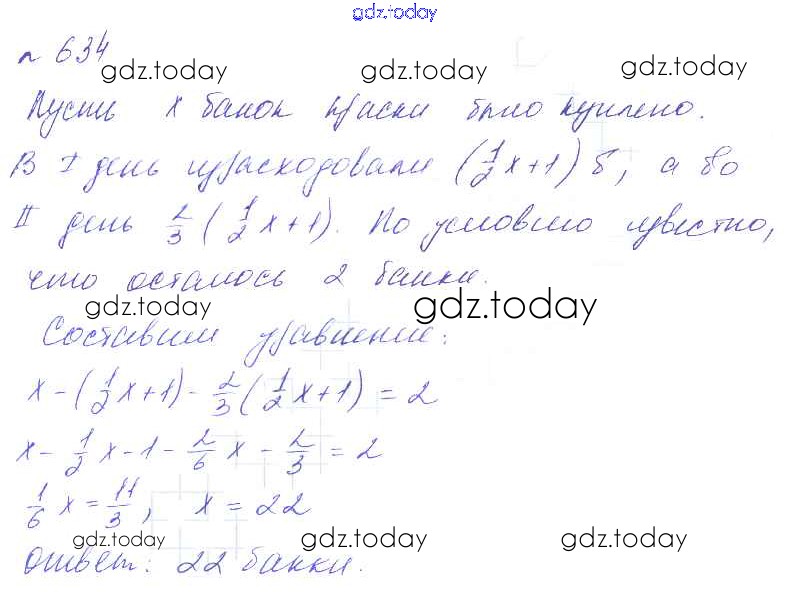 gdz.today
п 634
gdz.today gdz.today gdz.today
Пусть х банок краски было куплено.
В I день израсходовали (1/2 х + 1) б, а во
II день 2/3 (1/2 х + 1). По условию известно,
что осталось 2 банки.
gdz.today gdz.today
Составим уравнение:
х - (1/2 х + 1) - 2/3 (1/2 х + 1) = 2
х - 1/2 х - 1 - 2/6 х - 2/3 = 2
1/6 х = 11/3, х = 22
gdz.today gdz.today gdz.today
Ответ: 22 банки.